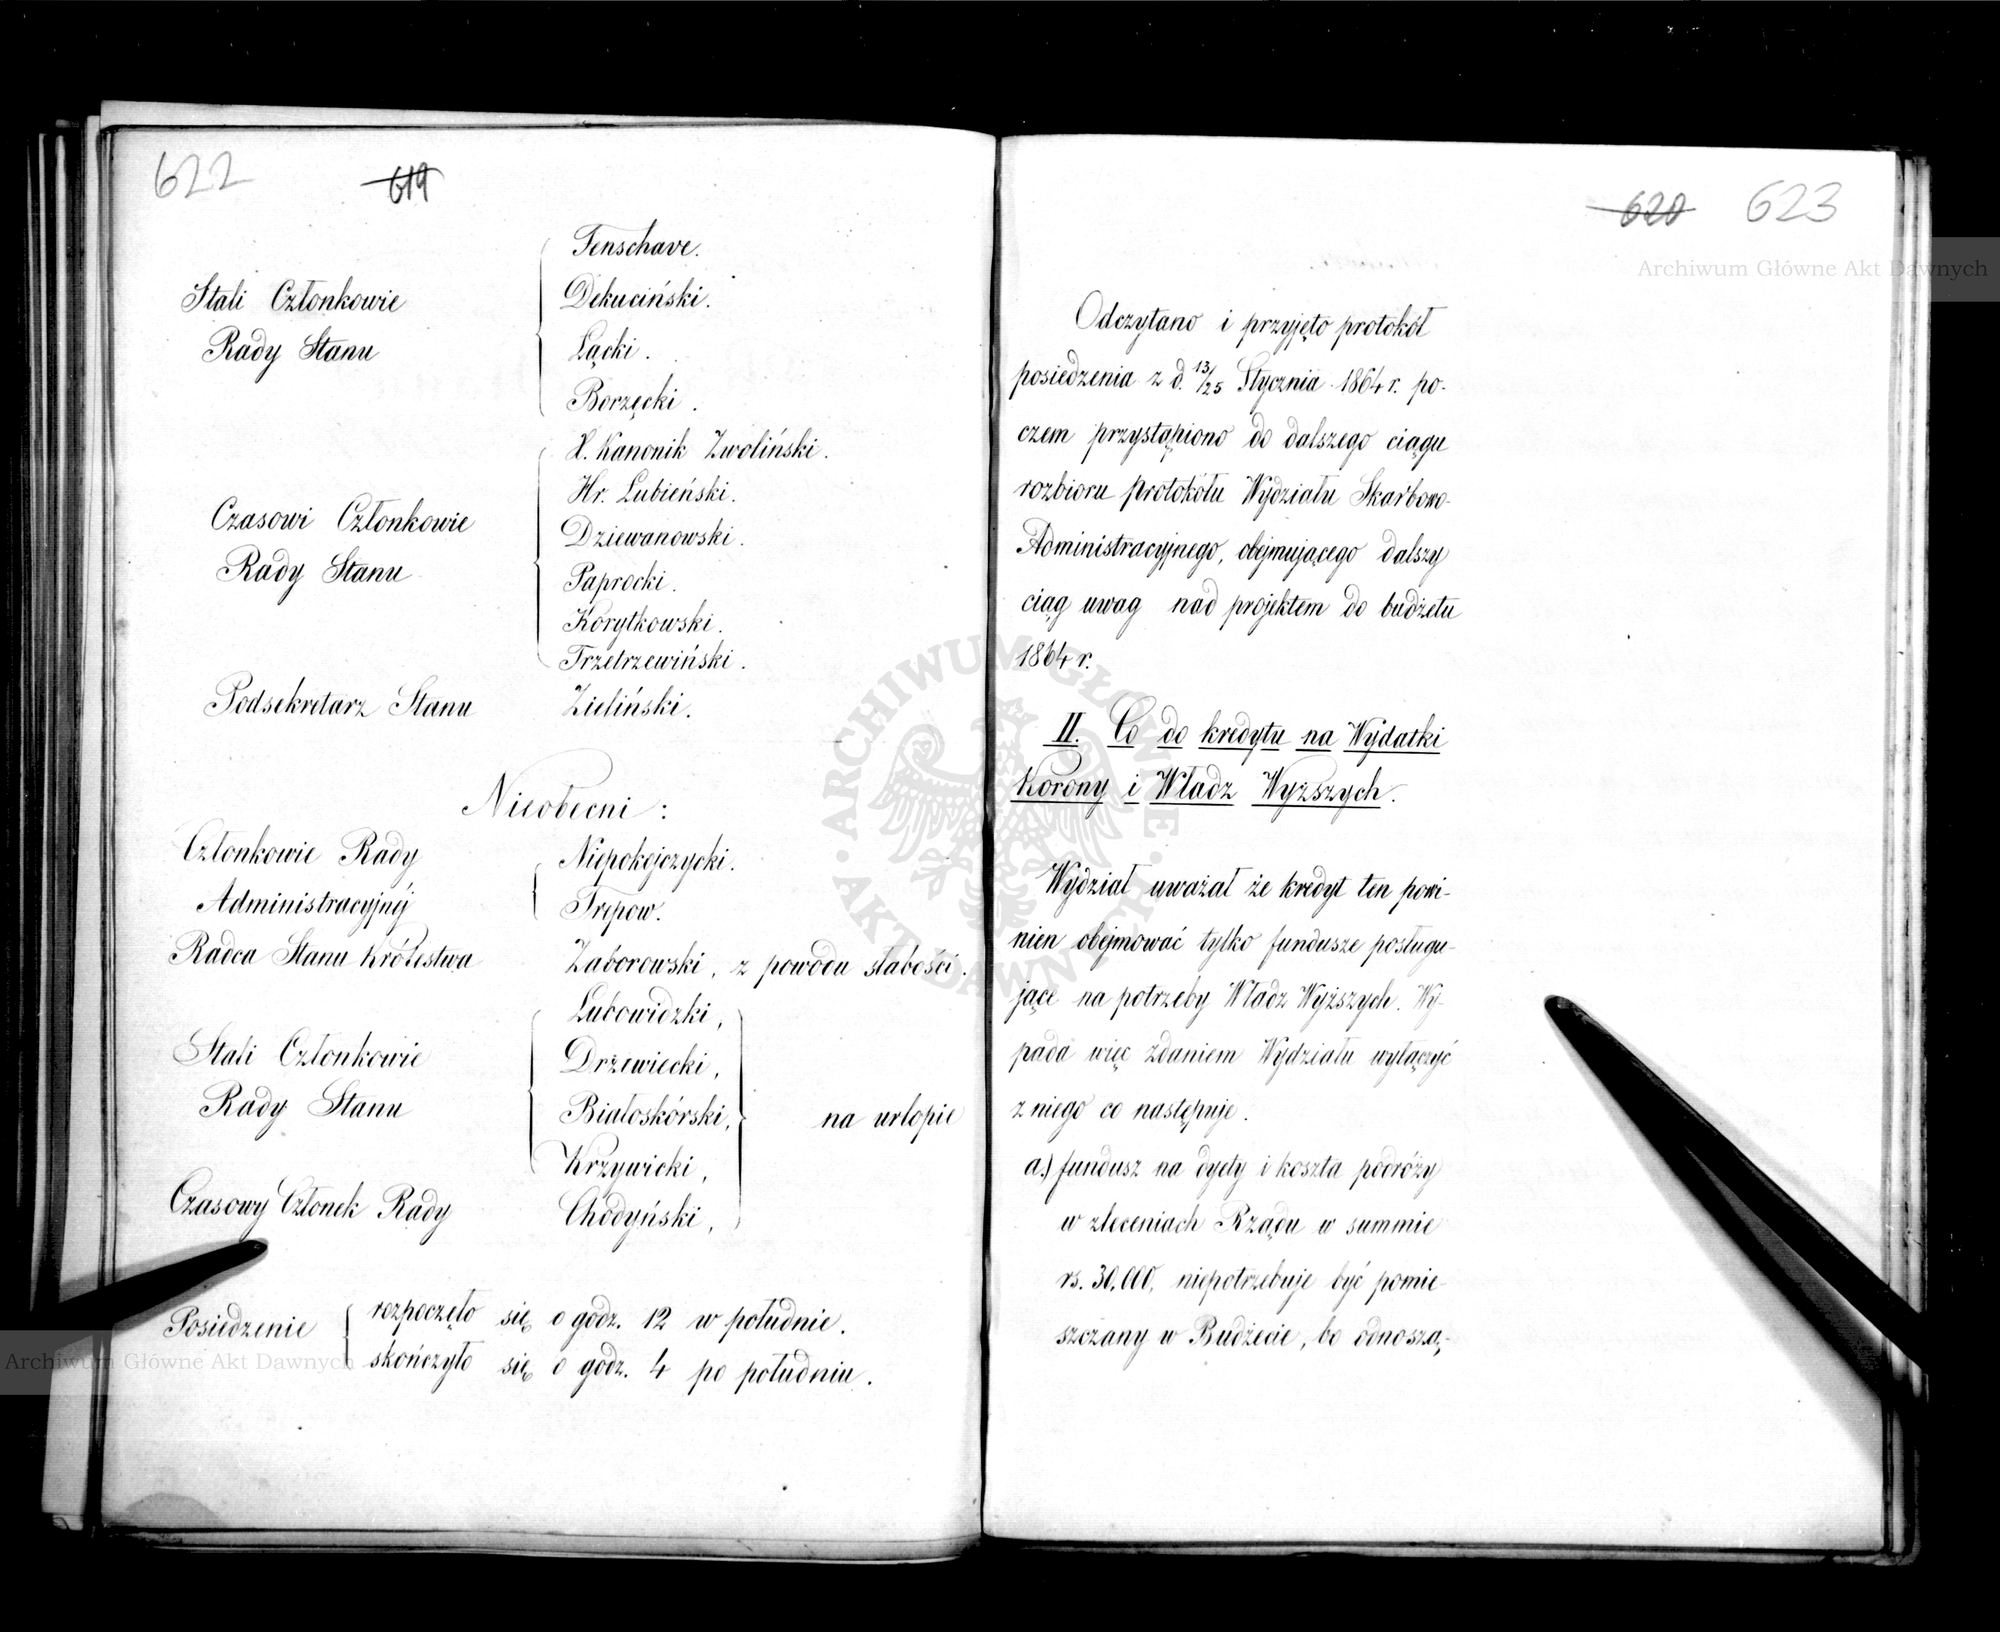 622 619
Stali Członkowie Rady Stanu
Fenschave.
Dekuciński.
Łącki.
Borzęcki.
Czasowi Członkowie Rady Stanu
X. Kanonik Zwoliński.
Hr. Łubieński.
Dziewanowski.
Paprocki.
Korytkowski.
Trzetrzewiński.
Podsekretarz Stanu Zieliński.
Nieobecni:
Członkowie Rady Administracyjnéj
Niepokojczycki.
Trepow.
Radca Stanu Królestwa Zaborowski, z powodu słabości.
Stali Członkowie Rady Stanu
Łubowidzki,
Drzewiecki,
Białoskórski, na urlopie
Krzywicki,
Czasowy Członek Rady Chodyński,
Posiedzenie
rozpoczęło się o godz. 12 w południe.
skończyło się o godz. 4 po południu.
620 623
Odczytano i przyjęto protokół
posiedzenia z d. 13/25 Stycznia 1864 r. po-
czem przystąpiono do dalszego ciągu
rozbioru protokółu Wydziału Skarbowo-
Administracyjnego, obejmującego dalszy
ciąg uwag nad projektem do budżetu
1864 r.
II. Co do kredytu na Wydatki
Korony i Władz Wyższych.
Wydział uważał że kredyt ten powi-
nien obejmować tylko fundusze posługu-
jące na potrzeby Władz Wyższych. Wy-
pada więc zdaniem Wydziału wyłączyć
z niego co następuje.
a.) fundusz na dyety i koszta podróży
w zleceniach Rządu w summie
rs. 30,000, niepotrzebuje być pomie-
szczany w Budżecie, bo odnoszą-
Archiwum Główne Akt Dawnych
Archiwum Główne Akt Dawnych
ARCHIWUM GŁÓWNE · AKT DAWNYCH ·